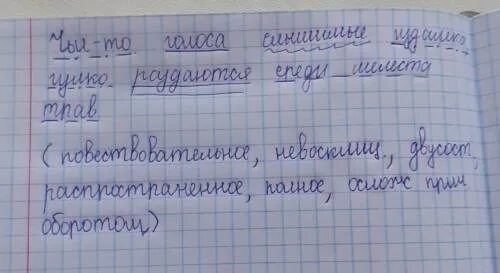 Чьи-то голоса слышимые издалека,
гулко раздаются среди шелеста
трав
(повествовательное, невосклиц., двусост,
распространенное, полное, ослож прич
оборотом)